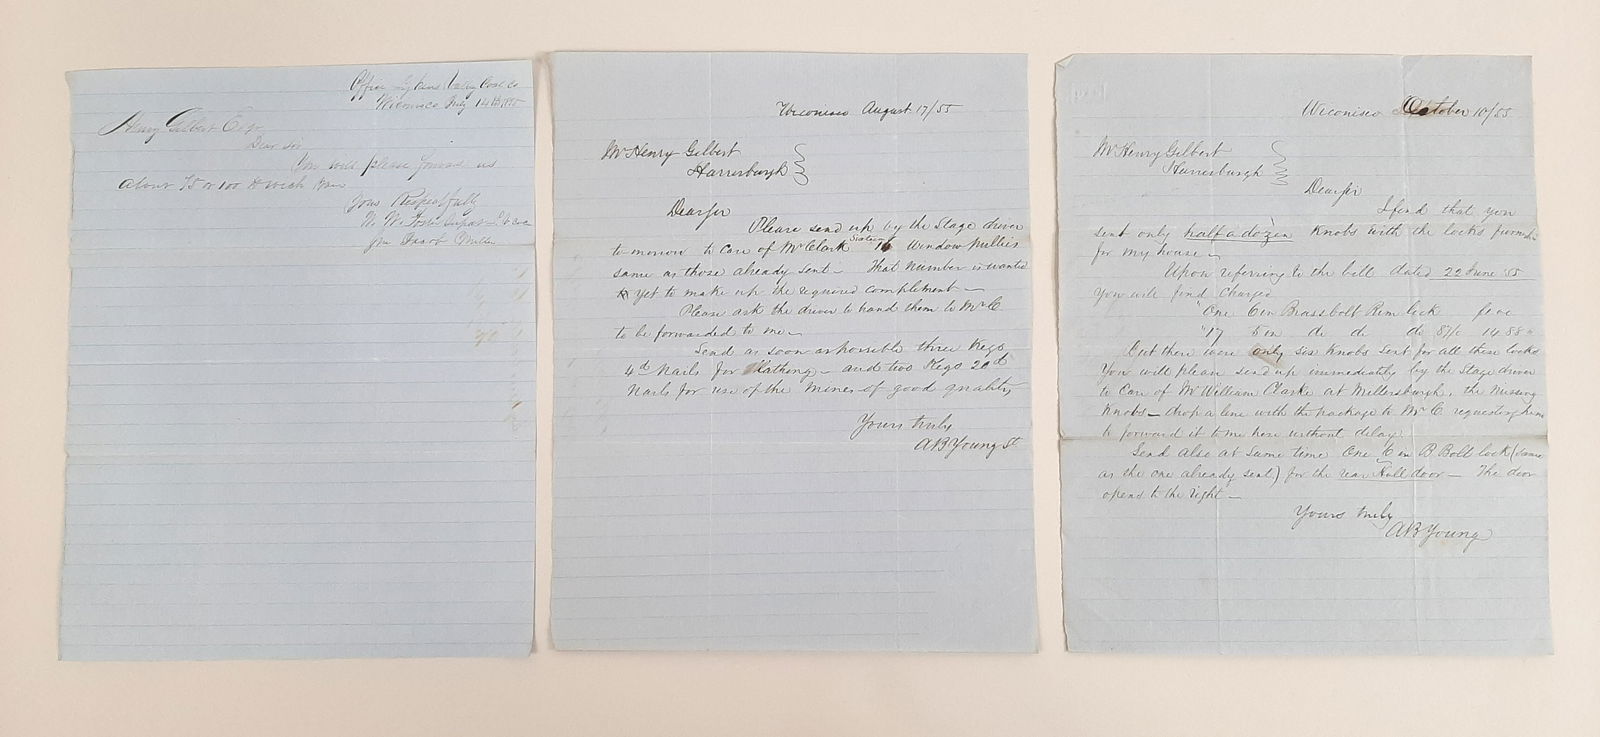 Office Lykens Valley Coal Co
Wiconisco July 14th 1855
Henry Gilbert Esqr
Dear Sir
You will please forward us
about 75 or 100 lb
Yours Respectfully
W. W. Foster
Jacob Miller
Wiconisco August 17/55
Mr Henry Gilbert
Harrisburgh
Dear sir
Please send up by the Stage driver
to morrow to care of Mr Clark Sixteen 16 Window Pullies
same as those already sent – That number is wanted
yet to make up the required complement –
Please ask the driver to hand them to Mr C.
to be forwarded to me –
Send as soon as possible three Kegs
4d Nails for lathing – and two Kegs 20d
Nails for use of the mines of good quality
Yours truly
A B Young St
Wiconisco October 10/55
Mr Henry Gilbert
Harrisburgh
Dear sir
I find that you
sent only half a dozen Knobs with the locks furnish
for my house –
Upon referring to the bill dated 22 June 55
You will find Charged
"One 6 in Brassbolt Rim lock
"17 5 in do do do 87½ 14 88 "
But there were only six Knobs sent for all these locks
You will please send up immediately by the Stage driver
to Care of Mr William Clark at Millersburgh, the missing
Knobs – drop a line with the package to Mr C. requesting him
to forward it to me here without delay
Send also at same time One 6 in B Bolt lock (same
as the one already sent) for the rear Hall door – The door
opens to the right –
Yours truly
A B Young